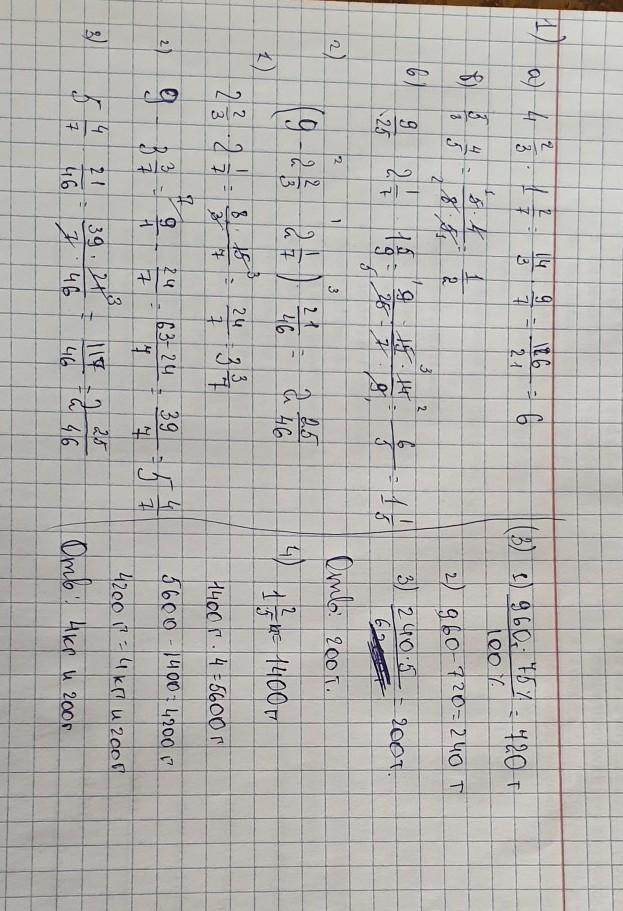 1) a) 4 2/3 · 1 2/7 = 14/3 · 9/7 = 126/21 = 6
б) 5/8 · 4/5 = 5·4/8·5 = 1/2
в) 9/25 · 2 1/7 · 15/9 = 9·15·14/25·7·9 = 6/5 = 1 1/5
2) (9 - 2 2/3 · 2 1/7) · 21/46 = 2 25/46
1) 2 2/3 · 2 1/7 = 8·15/3·7 = 24/7 = 3 3/7
2) 9 - 3 3/7 = 9/1 - 24/7 = 63-24/7 = 39/7 = 5 4/7
3) 5 4/7 · 21/46 = 39·21/7·46 = 117/46 = 2 25/46
(3) 1) 960·75%/100% = 720 т
2) 960-720=240 т
3) 240·5/6 = 200т.
Отв: 200т.
4) 1 2/5 кг = 1400 г
1400 г · 4 = 5600 г
5600 - 1400 = 4200 г
4200 г = 4 кг и 200 г
Отв: 4кг и 200г